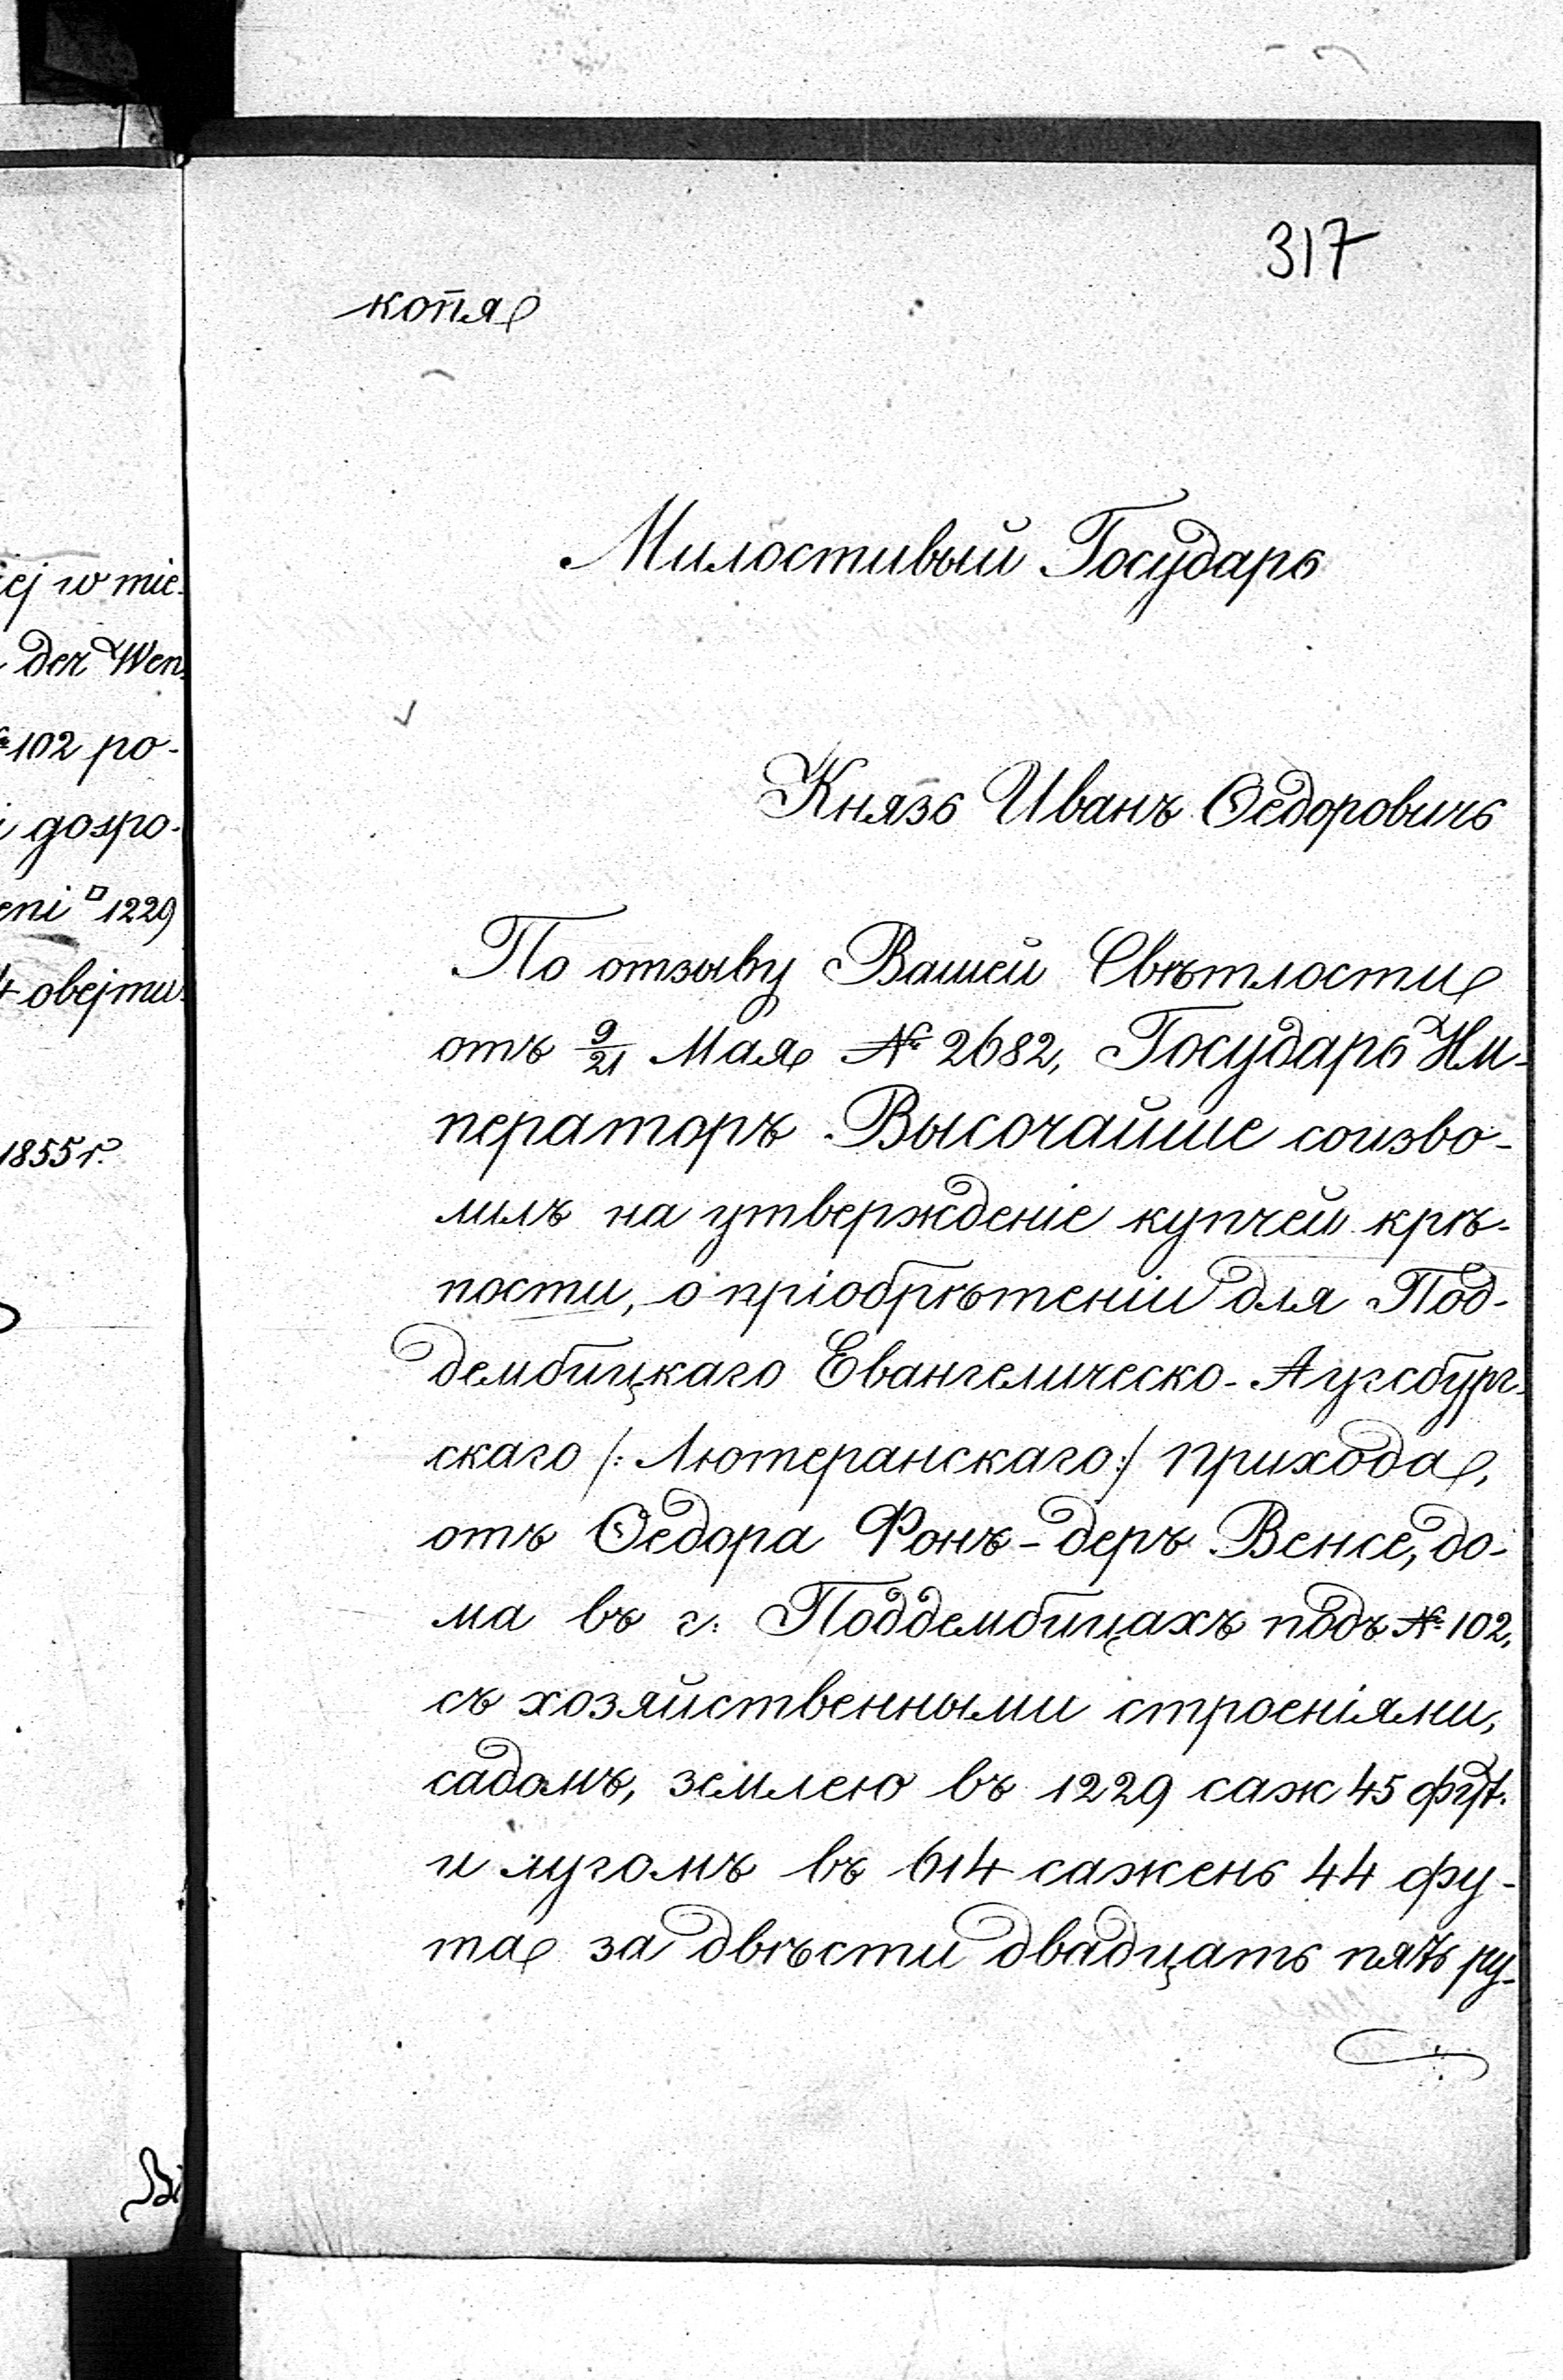 iej w mie-
der Wen
№ 102 po-
i gospo-
eni □ 1229
4 obejmu-
1855 r.
Bi
317
копія
Милостивый Государь
Князь Иванъ Ѳедоровичъ
По отзыву Вашей Свѣтлости
отъ 9/21 Мая № 2682, Государь Им-
ператоръ Высочайше соизво-
лилъ на утвержденіе купчей крѣ-
пости, о пріобрѣтеніи для Под-
дембицкаго Евангелическо-Аугсбург-
скаго /: Лютеранскаго :/ прихода,
отъ Ѳедора Фонъ-деръ Венсе, до-
ма въ г: Поддембицахъ подъ № 102,
съ хозяйственными строеніями,
садомъ, землею въ 1229 саж 45 фут.
и лугомъ въ 614 сажень 44 фу-
та за двѣсти двадцать пять ру-